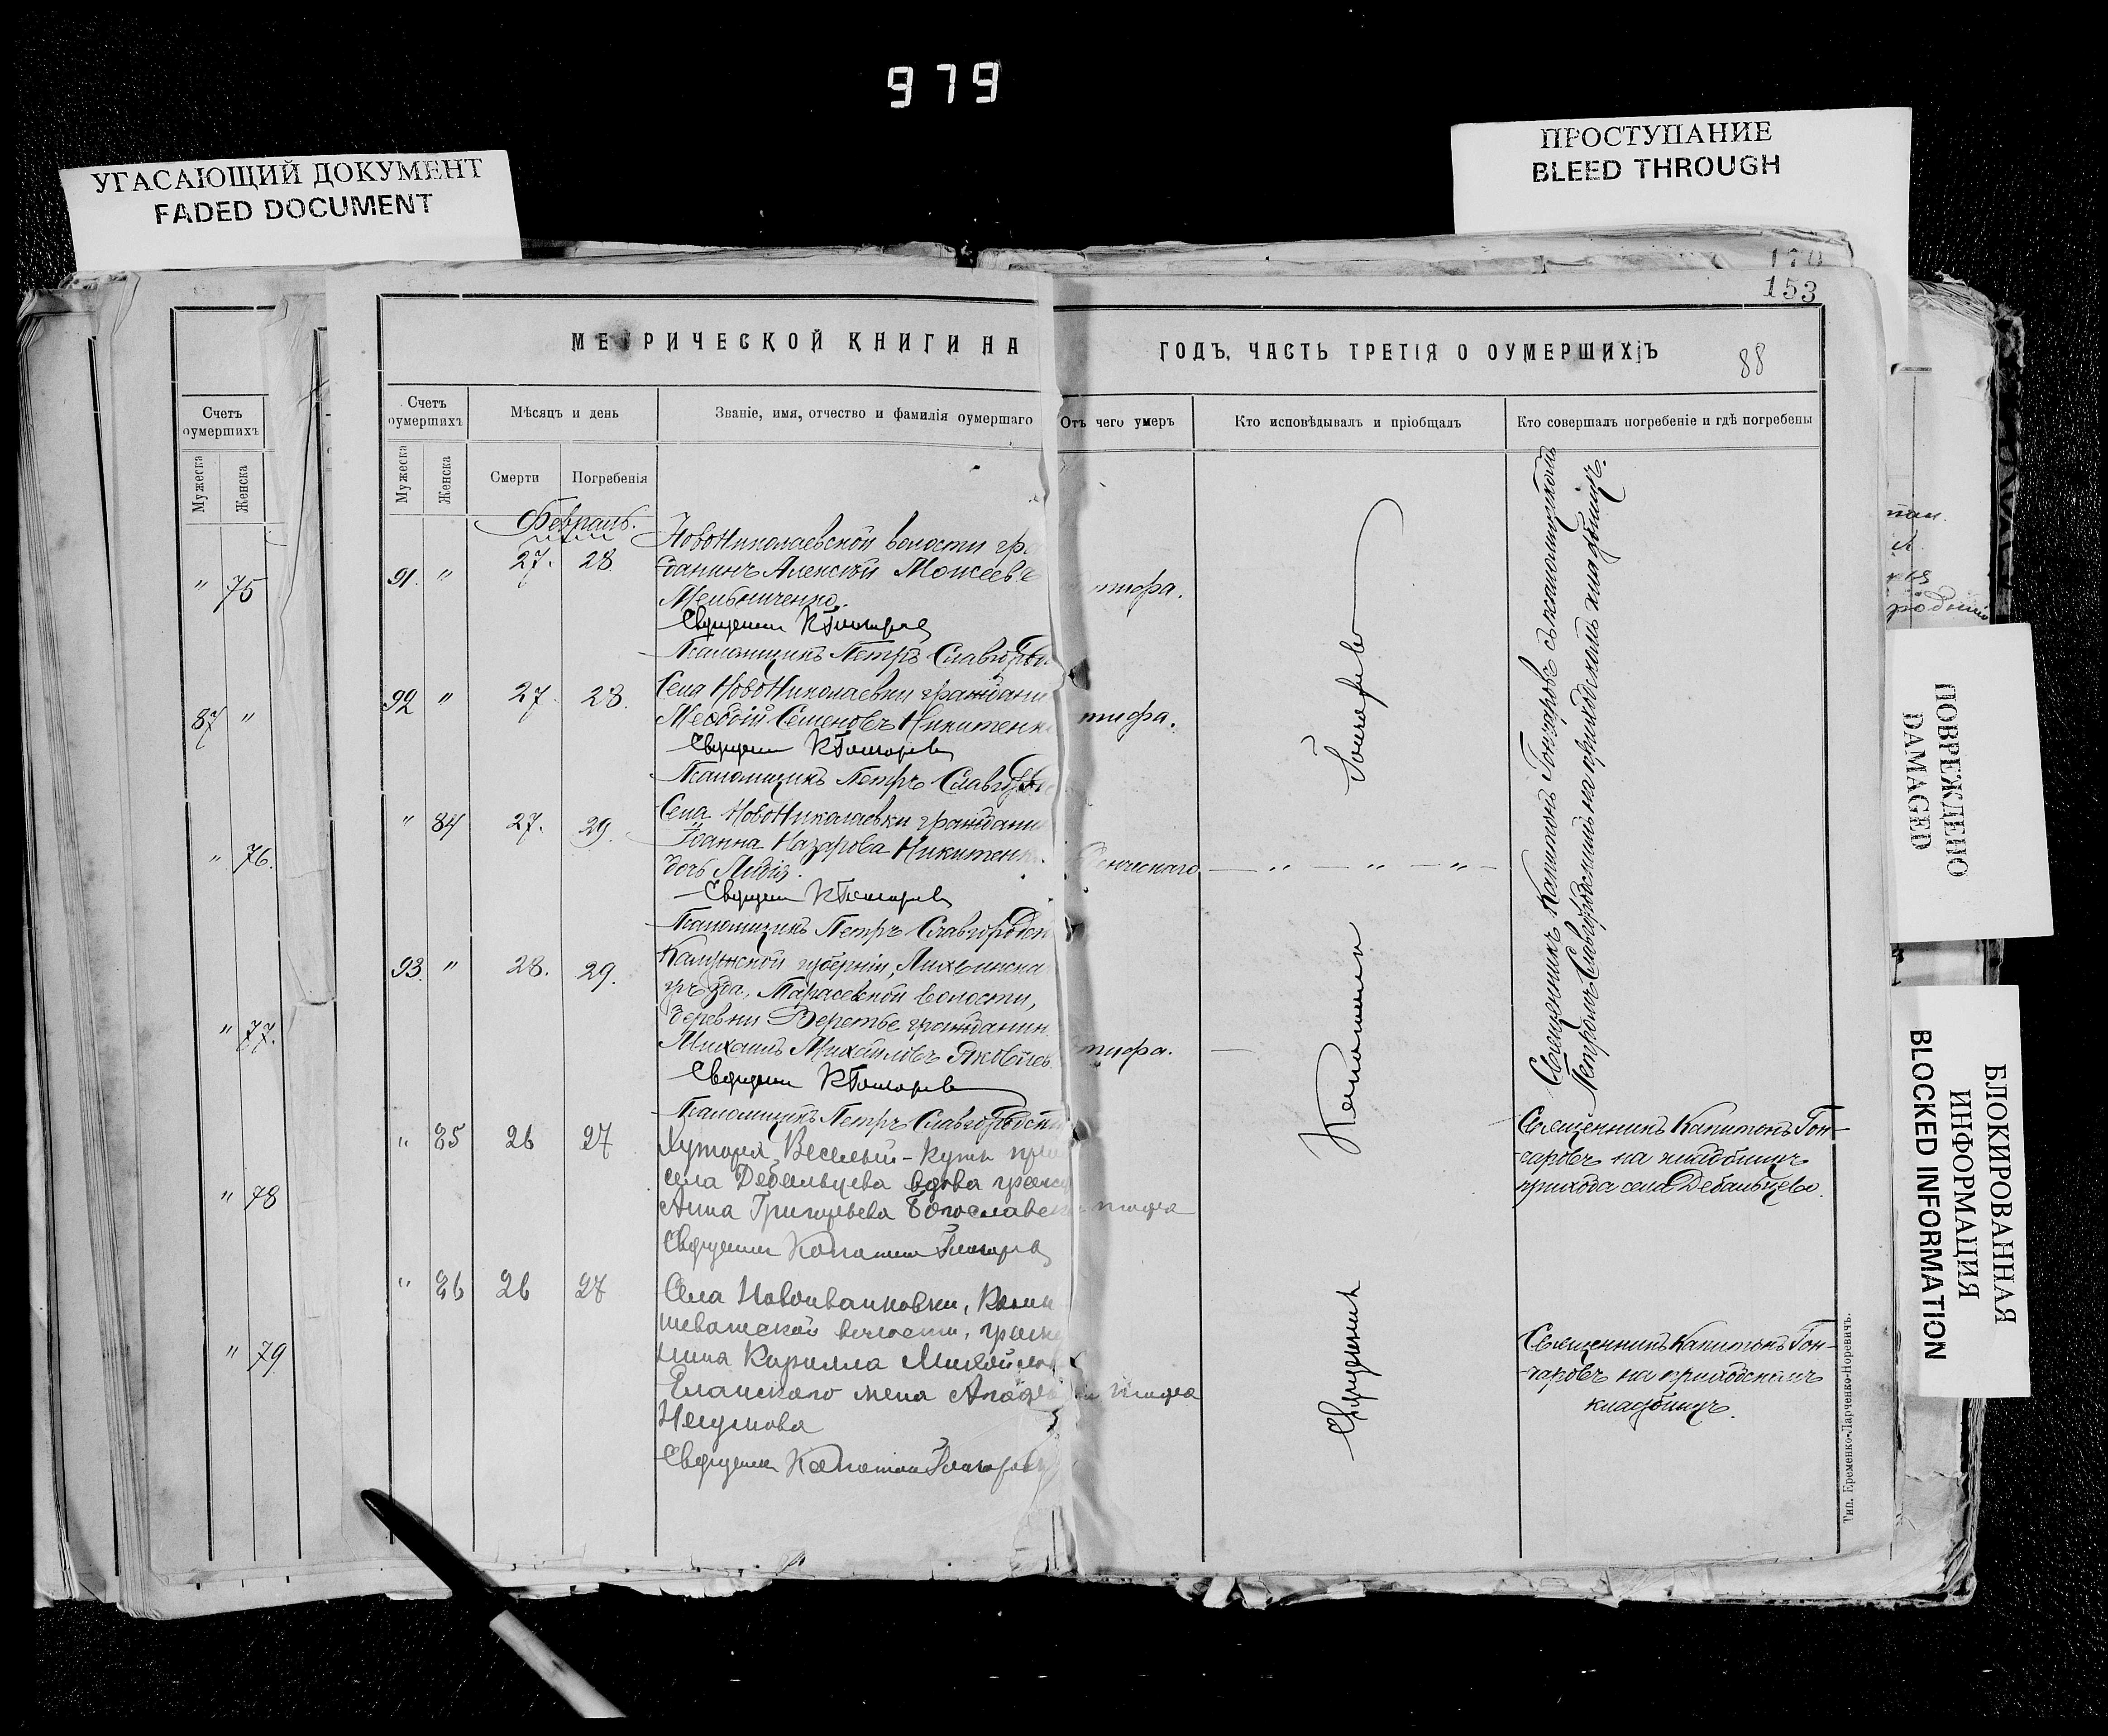 979
УГАСАЮЩИЙ ДОКУМЕНТ
FADED DOCUMENT
ПРОСТУПАНИЕ
BLEED THROUGH
170
153
88
МЕТРИЧЕСКОЙ КНИГИ НА ГОДЪ, ЧАСТЬ ТРЕТІЯ О ОУМЕРШИХЪ
Счетъ оумершихъ
Мужеска
Женска
" 75
87 "
" 76.
" 77.
" 78
" 79
Счетъ оумершихъ
Мѣсяцъ и день
Званіе, имя, отчество и фамилія оумершаго
Отъ чего умеръ
Кто исповѣдывалъ и пріобщалъ
Кто совершалъ погребеніе и гдѣ погребены
Мужеска
Женска
Смерти
Погребенія
Февраль.
91. " 27. 28.
НовоНиколаевской волости гра
жданинъ Алексѣй Моисеевъ
Мельниченко.
тифа.
Священникъ КГончаровъ
Псаломщикъ Петръ Славгород
92 " 27. 28.
Села НовоНиколаевки граждани
Меѳодій Семеновъ Никитенк
тифа.
Священникъ КГончаровъ
Псаломщикъ Петръ Славгор
" 84 27. 29.
Села НовоНиколаевки граждани
Іоанна Назарова Никитен
дочь Лидія.
— " — " — " —
Священникъ КГончаровъ
Псаломщикъ Петръ Славгородск
93. " 28. 29.
Калужской губерніи, Лихвинска
уѣзда, волости,
деревни Веретье гражданин
Михаилъ Михайловъ Яковлев
тифа. —
Священникъ КГончаровъ
Псаломщикъ Петръ Славгородскі
" 85 26 27
Хутора Веселый-Кутъ при
села Дебальцева вдова гражд
Анна Григорьева Богославск
тифа
Священникъ Капитонъ Гончаровъ
" 86 26 27
Села Новоивановки,
волости, гражд
нина Кирилла Михайлов
Еланскаго жена Агафі
тифа
Священникъ Капитонъ Гончаровъ
Священникъ Капитонъ Гончаровъ
Священникъ Капитонъ Гончаровъ съ псаломщикомъ
Петромъ Славгородскимъ на приходскомъ кладбищѣ.
Священникъ Капитонъ Гон-
-чаровъ на кладбищѣ
прихода села Дебальцево.
Священникъ Капитонъ Гон-
-чаровъ на приходскомъ
кладбищѣ.
Тип. Еременко-Ларченко-Норевичъ.
ПОВРЕЖДЕНО
DAMAGED
БЛОКИРОВАННАЯ
ИНФОРМАЦИЯ
BLOCKED INFORMATION